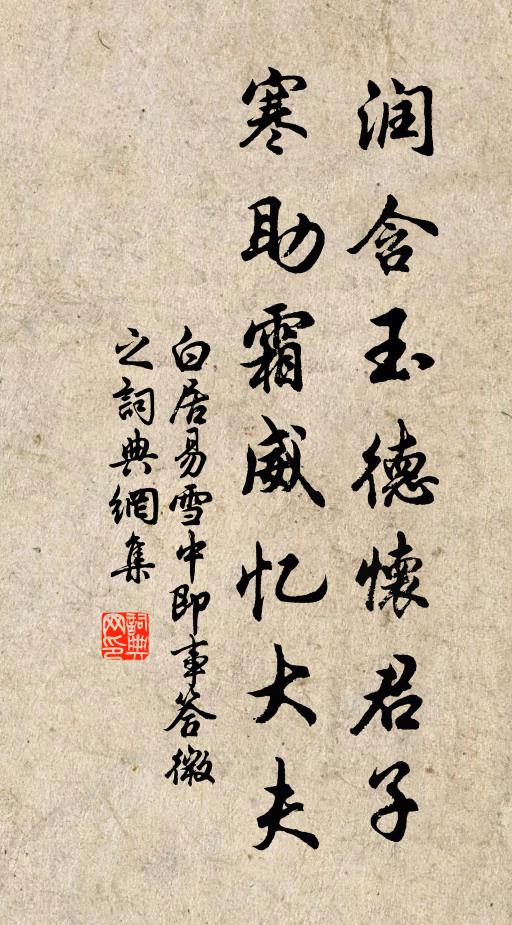 润含玉德懷君子
寒助霜威忆大夫
白居易雪中即事答微
之詞典網集
詞典
网印